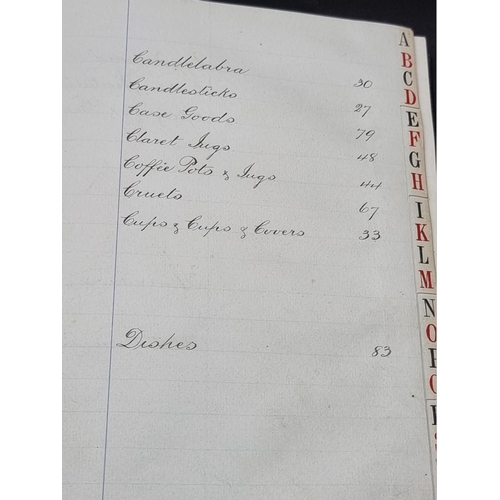 Candlelabra 30
Candlesticks 27
Case Goods 79
Claret Jugs 48
Coffee Pots & Jugs 44
Cruets 67
Cups & Cups & Covers 33
Dishes 83
A
B
C
D
E
F
G
H
I
K
L
M
N
O
P